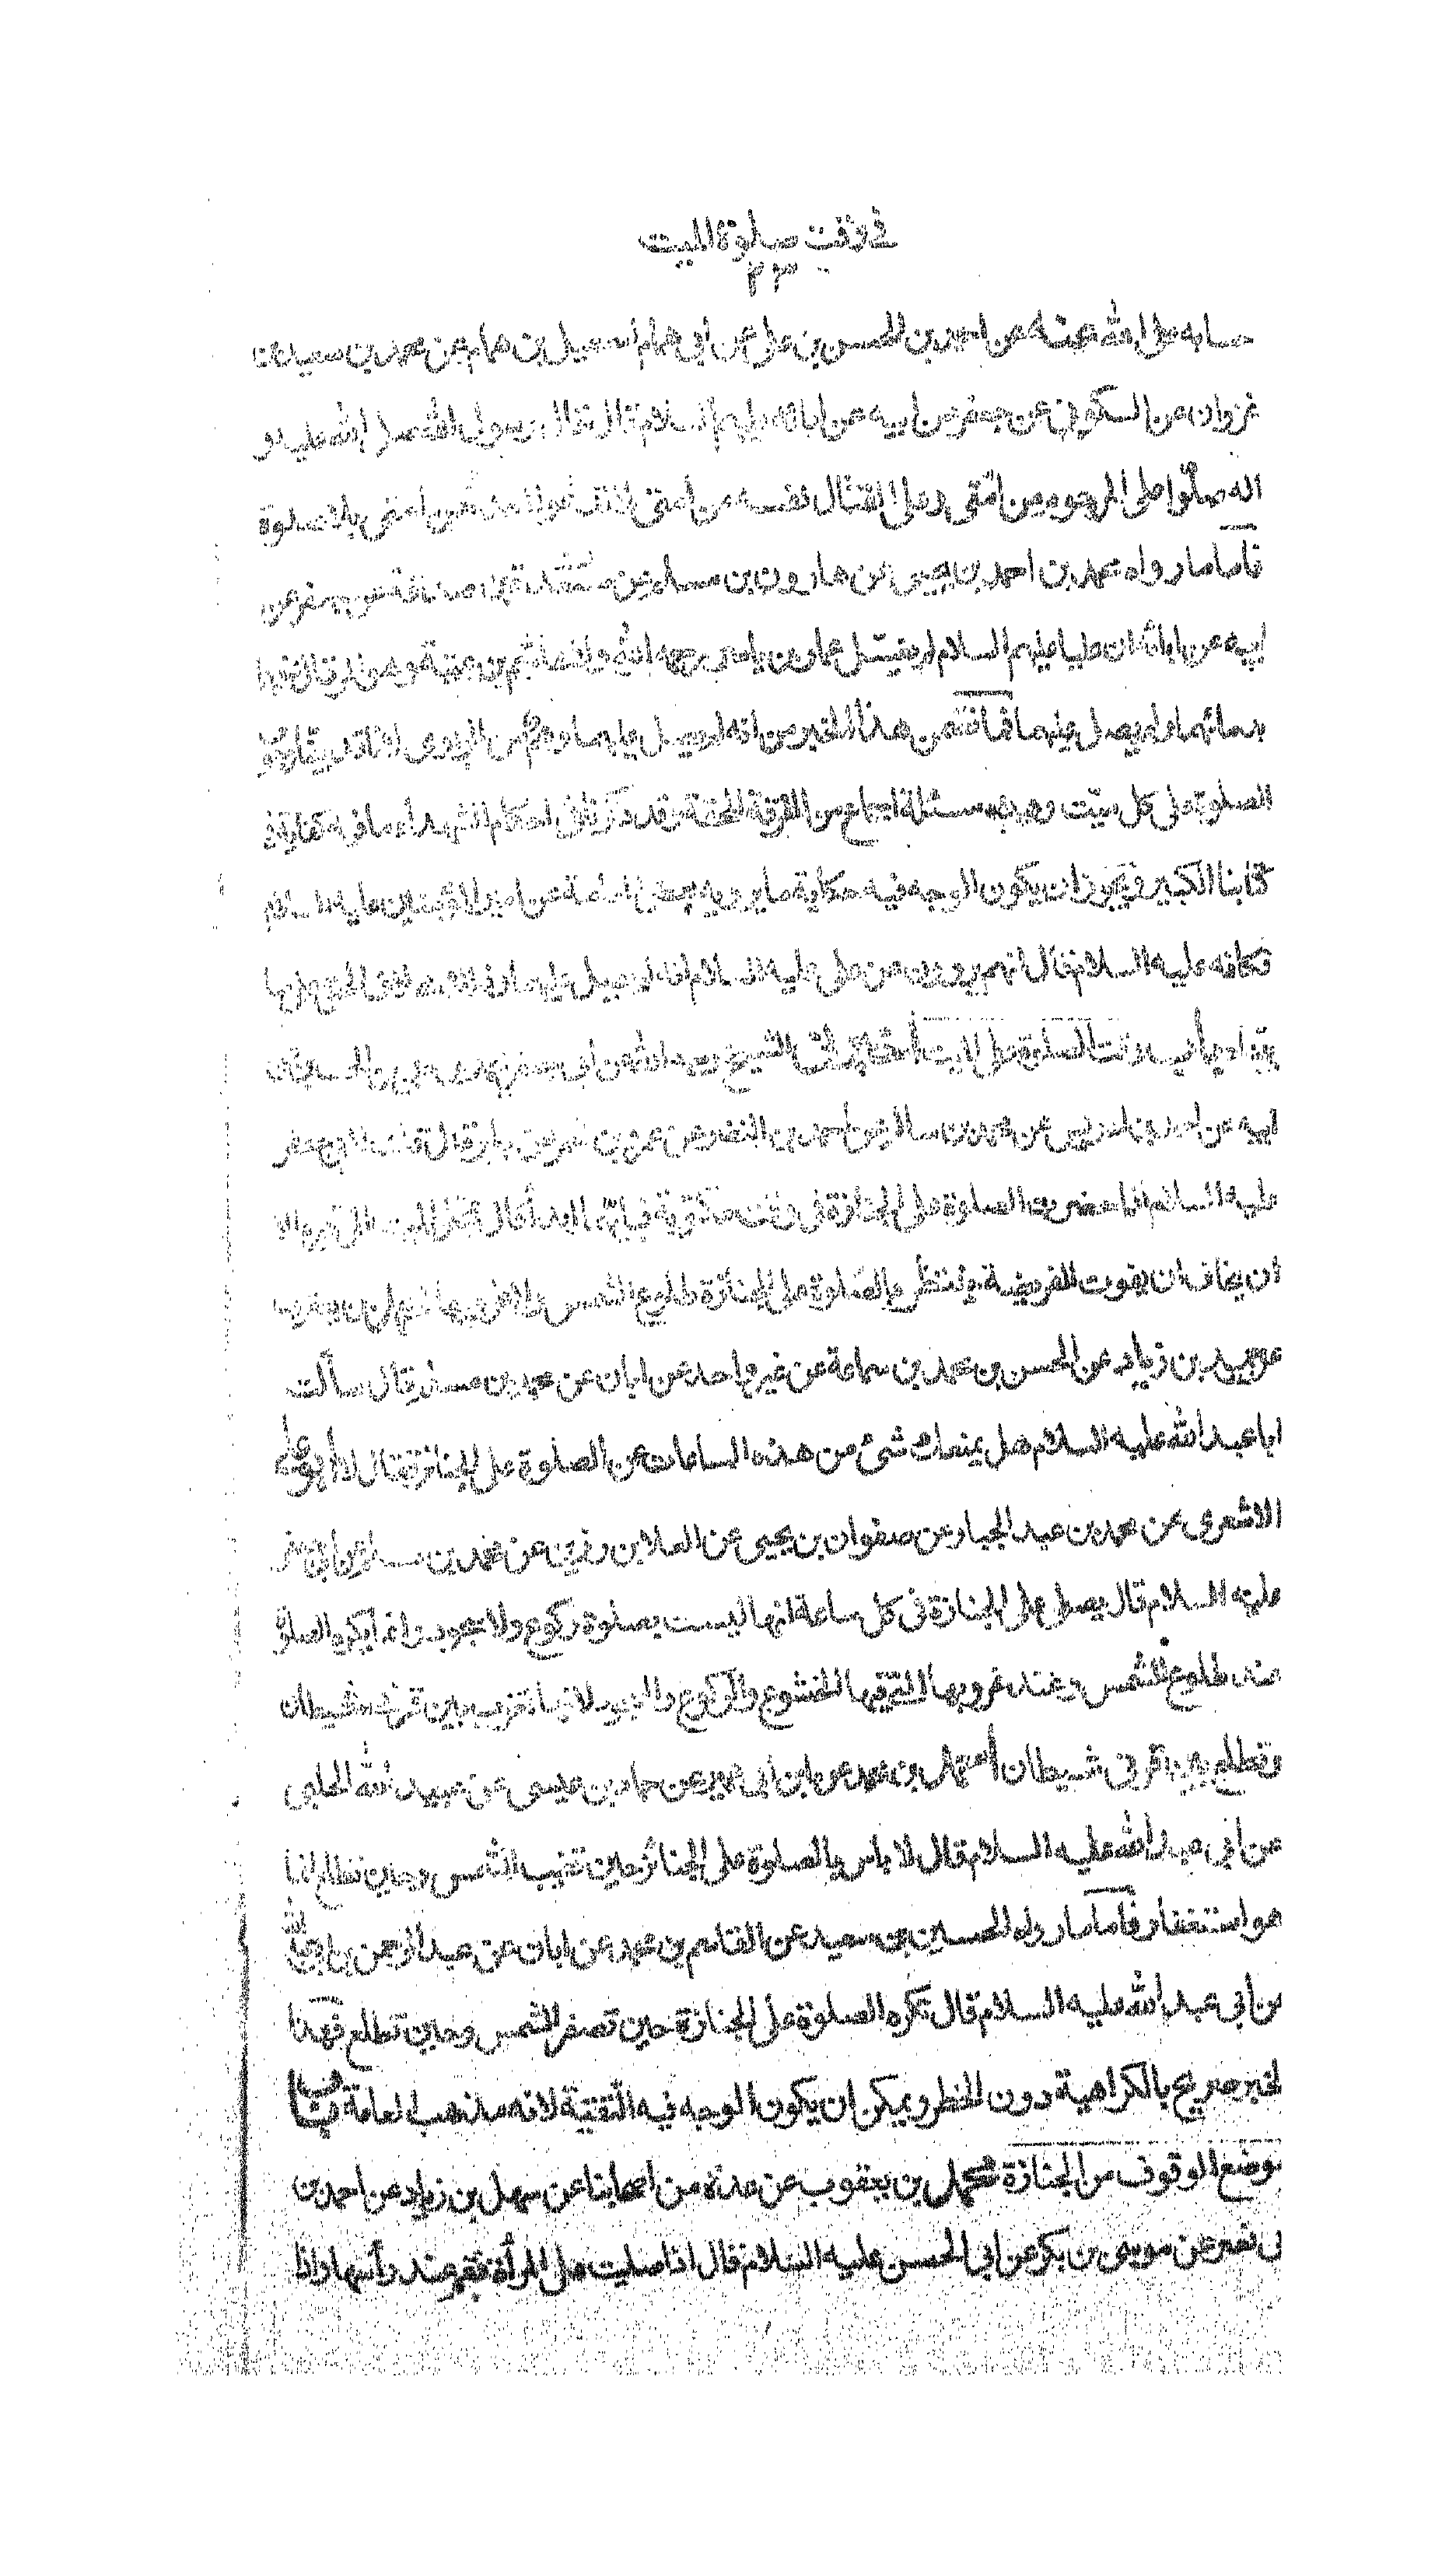 في وقت صلوة الميت
٢٣
حسابه على الله عنه عن احمد بن الحسن بن على عن ابى همام اسمعيل بن همام عن محمد بن سعيد عن
غزوان عن السكوني عن جعفر عن ابيه عن ابائه عليهم السلام قال قال رسول الله صلى الله عليه و
اله صلوا على المرجوم من امتى و على القتال نفسه من امتى لا تدعوا احدا من امتى بلا صلوة
فاما ما رواه محمد بن احمد بن يحيى عن هارون بن مسلم عن مسعدة بن صدقة عن جعفر عن
ابيه عن ابائه ان عليا عليهم السلام لم يغسل عمار بن ياسر رحمه الله ولا هاشم بن عتبة وهو المرقال دفنهما
بدمائهما ولم يصل عليهما فما تضمن هذا الخبر من انه لم يصل عليهما وهم من الراوى لانا قد بينا وجوب
الصلوة على كل ميت وهذه مسئلة اجماع من الفرقة المحقة وقد ذكرنا فى احكام الشهداء ما فيه كفاية فى
كتابنا الكبير ويجوز ان يكون الوجه فيه حكاية ما يرويه بعض العامة عن امير المؤمنين عليه السلام
فكانه عليه السلام قال انهم يروون عن على عليه السلام انه لم يصل عليهما وذلك خلاف الحق على ما
بيناه باب وقت الصلوة على الميت اخبرنى الشيخ رحمه الله عن ابى جعفر محمد بن على بن الحسين عن
ابيه عن احمد بن ادريس عن محمد بن سالم عن احمد بن النضر عن عمرو بن شمر عن جابر قال قلت لابى جعفر
عليه السلام اذا حضرت الصلوة على الجنازة فى وقت مكتوبة فبايهما ابدأ قال عجل الميت الى قبره الا
ان يخاف ان يفوت الفريضة ولا تنتظر بالصلوة على الجنازة طلوع الشمس ولا غروبها محمد بن يعقوب
عن حميد بن زياد عن الحسن بن محمد بن سماعة عن غير واحد عن ابان عن محمد بن مسلم قال سألت
ابا عبد الله عليه السلام هل يمنعك شئ من هذه الساعات عن الصلوة على الجنائز فقال لا ابو على
الاشعرى عن محمد بن عبد الجبار عن صفوان بن يحيى عن العلا بن رزين عن محمد بن مسلم عن ابى جعفر
عليه السلام قال يصلى على الجنازة فى كل ساعة انها ليست بصلوة ركوع ولا سجود وانما يكره الصلوة
عند طلوع الشمس وعند غروبها التى فيها الخشوع والركوع والسجود لانها تغرب بين قرنى شيطان
وتطلع بين قرنى شيطان احمد بن محمد عن ابن ابى عمير عن حماد بن عيسى عن عبيد الله الحلبى
عن ابى عبد الله عليه السلام قال لا باس بالصلوة على الجنائز حين تغيب الشمس وحين تطلع انما
هو استغفار فاما ما رواه الحسين بن سعيد عن القاسم بن محمد عن ابان عن عبد الرحمن بن ابى عبد الله
عن ابى عبد الله عليه السلام قال تكره الصلوة على الجنازة حين تصفر الشمس وحين تطلع فهذا
الخبر صريح بالكراهية دون الحظر ويمكن ان يكون الوجه فيه التقية لانه مذهب العامة باب
موضع الوقوف من الجنازة محمد بن يعقوب عن عدة من اصحابنا عن سهل بن زياد عن احمد بن
ابى نصر عن موسى بن بكر عن ابى الحسن عليه السلام قال اذا صليت على المرأة فقم عند رأسها واذا